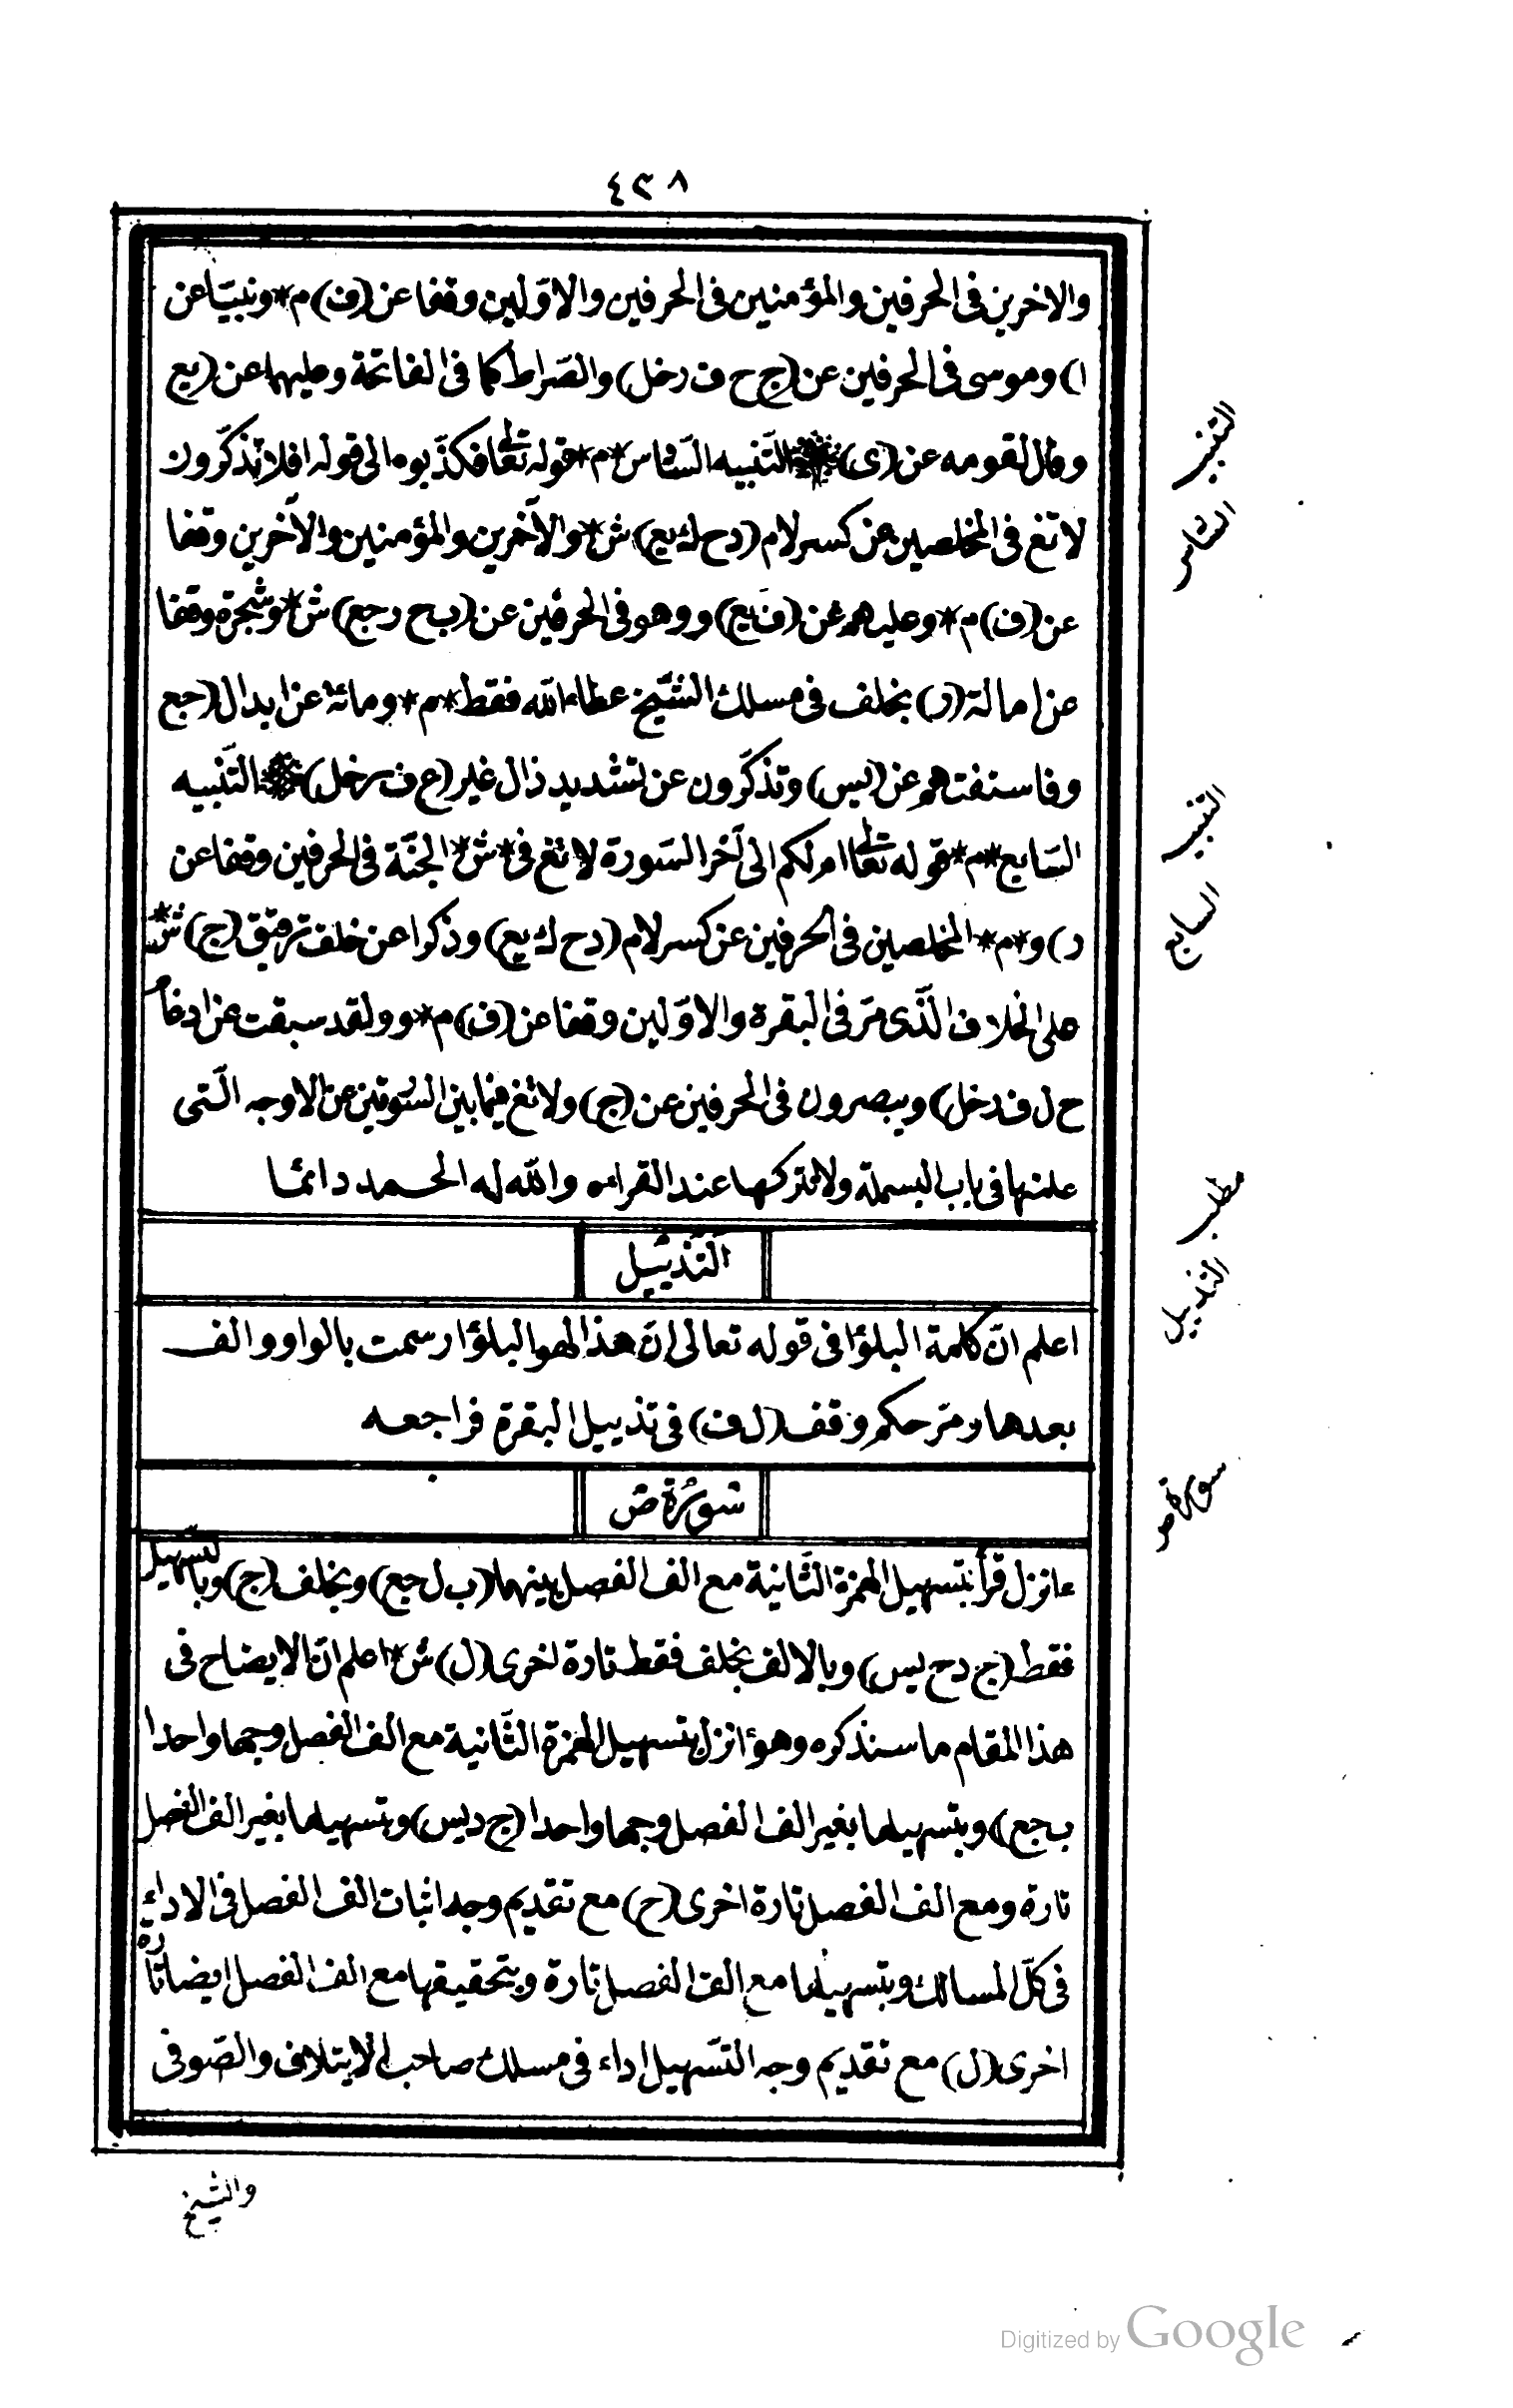 ٤٢٨
والاخرين فى الحرفين والمؤمنين فى الحرفين والاوّلين وقفا عن (ف) م * ونبيّا عن
ا) وموسى فى الحرفين عن (ج ح ف د خل) والصّراط كما فى الفاتحة وعليهما عن (يع
وقال لقومه عن (ى) التّنبيه السّادس * م * قوله تعالى فكذّبوه الى قوله افلا تذكّرون
لا تغ فى المخلصين عن كسر لام (د ح ك يع) ش * والآخرين والمؤمنين والآخرين وقفا
عن (ف) م * وعليهم عن (ف يع) ووهو فى الحرفين عن (ب ح ر جع) ش * وشجرة وقفا
عن امالة (ر) بخلف فى مسلك الشّيخ عطاء الله فقط * م * ومائة عن ابدال (جع
وفاستفتهم عن (يس) وتذكّرون عن تشديد ذال غير (ع ف ر خل) التّنبيه
السّابع * م * قوله تعالى ام لكم الى آخر السّورة لا تغ فى * ش * الجنّة فى الحرفين وقفا عن
ر) و * م * المخلصين فى الحرفين عن كسر لام (د ح ك يع) وذكرا عن خلف ترقيق (ج) ش *
على الخلاف الّذى مرّ فى البقرة والاوّلين وقفا عن (ف) م * وولقد سبقت عن ادغام
ح ل ف ر خل) ويبصرون فى الحرفين عن (ج) ولا تغ فيما بين السّورتين عن الاوجه الّتى
علمتها فى باب البسملة ولا تتركها عند القراءه والله له الحمد دائما
التّذييل
اعلم انّ كلمة البلؤا فى قوله تعالى انّ هذا لهو البلؤا رسمت بالواو والف
بعدها ومرّ حكم وقف (ل ف) فى تذييل البقرة فراجعه
سورة ص
ءانزل قرأ بتسهيل الهمزة الثّانية مع الف الفصل بينهما (ب ل جع) وبخلف (ح) وبالتسهيل
فقط (ج د ح يس) وبالالف بخلف فقط تارة اخرى (ل) ش * اعلم انّ الايضاح فى
هذا المقام ما سنذكره وهو ءانزل بتسهيل الهمزة الثّانية مع الف الفصل وجها واحدا
ب جع) وبتسهيلها بغير الف الفصل وجها واحدا (ج د يس) وتسهيلها بغير الف الفصل
تارة ومع الف الفصل تارة اخرى (ح) مع تقديم وجه اثبات الف الفصل فى الاداء
فى كلّ المسالك وبتسهيلها مع الف الفصل تارة وبتحقيقها مع الف الفصل ايضا تارة
اخرى (ل) مع تقديم وجه التسّهيل اداء فى مسلك صاحب الايتلاف والصّوفى
والشيخ
التنبيه
السّادس
التنبيه
السابع
مطلب
التذييل
سورة ص
Digitized by Google